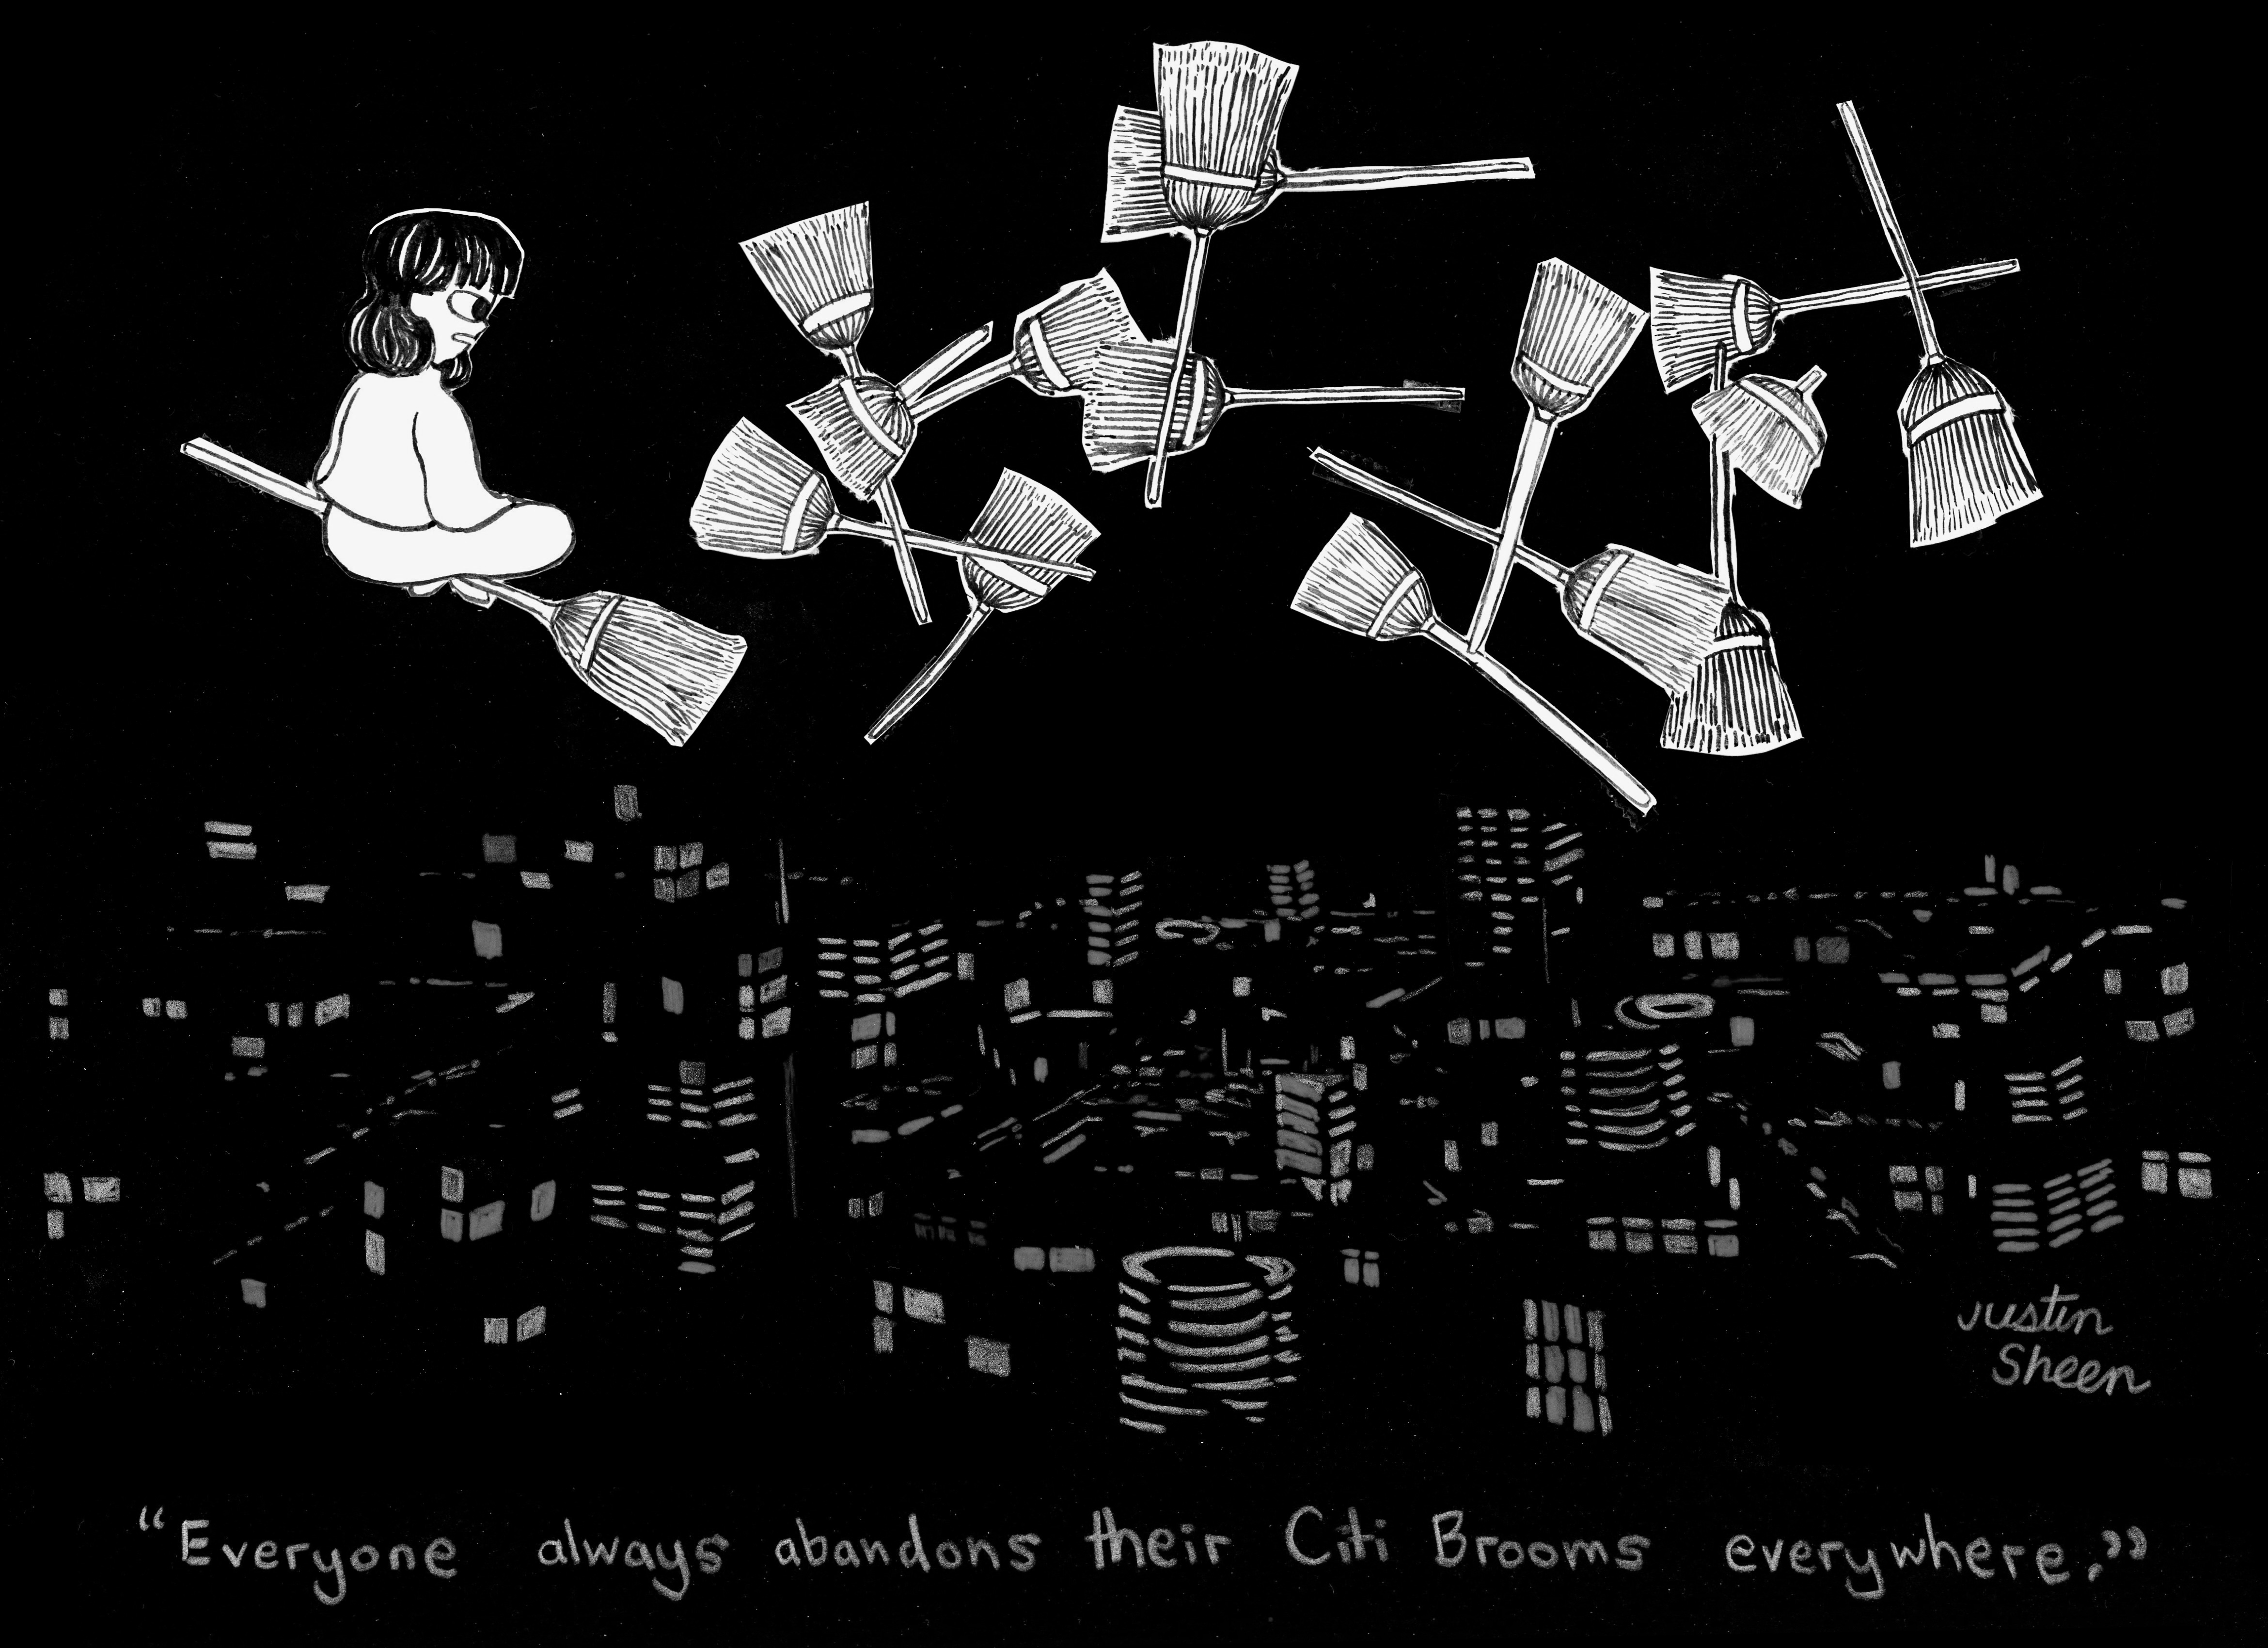 Justin
Sheen
“Everyone always abandons their Citi Brooms everywhere.”